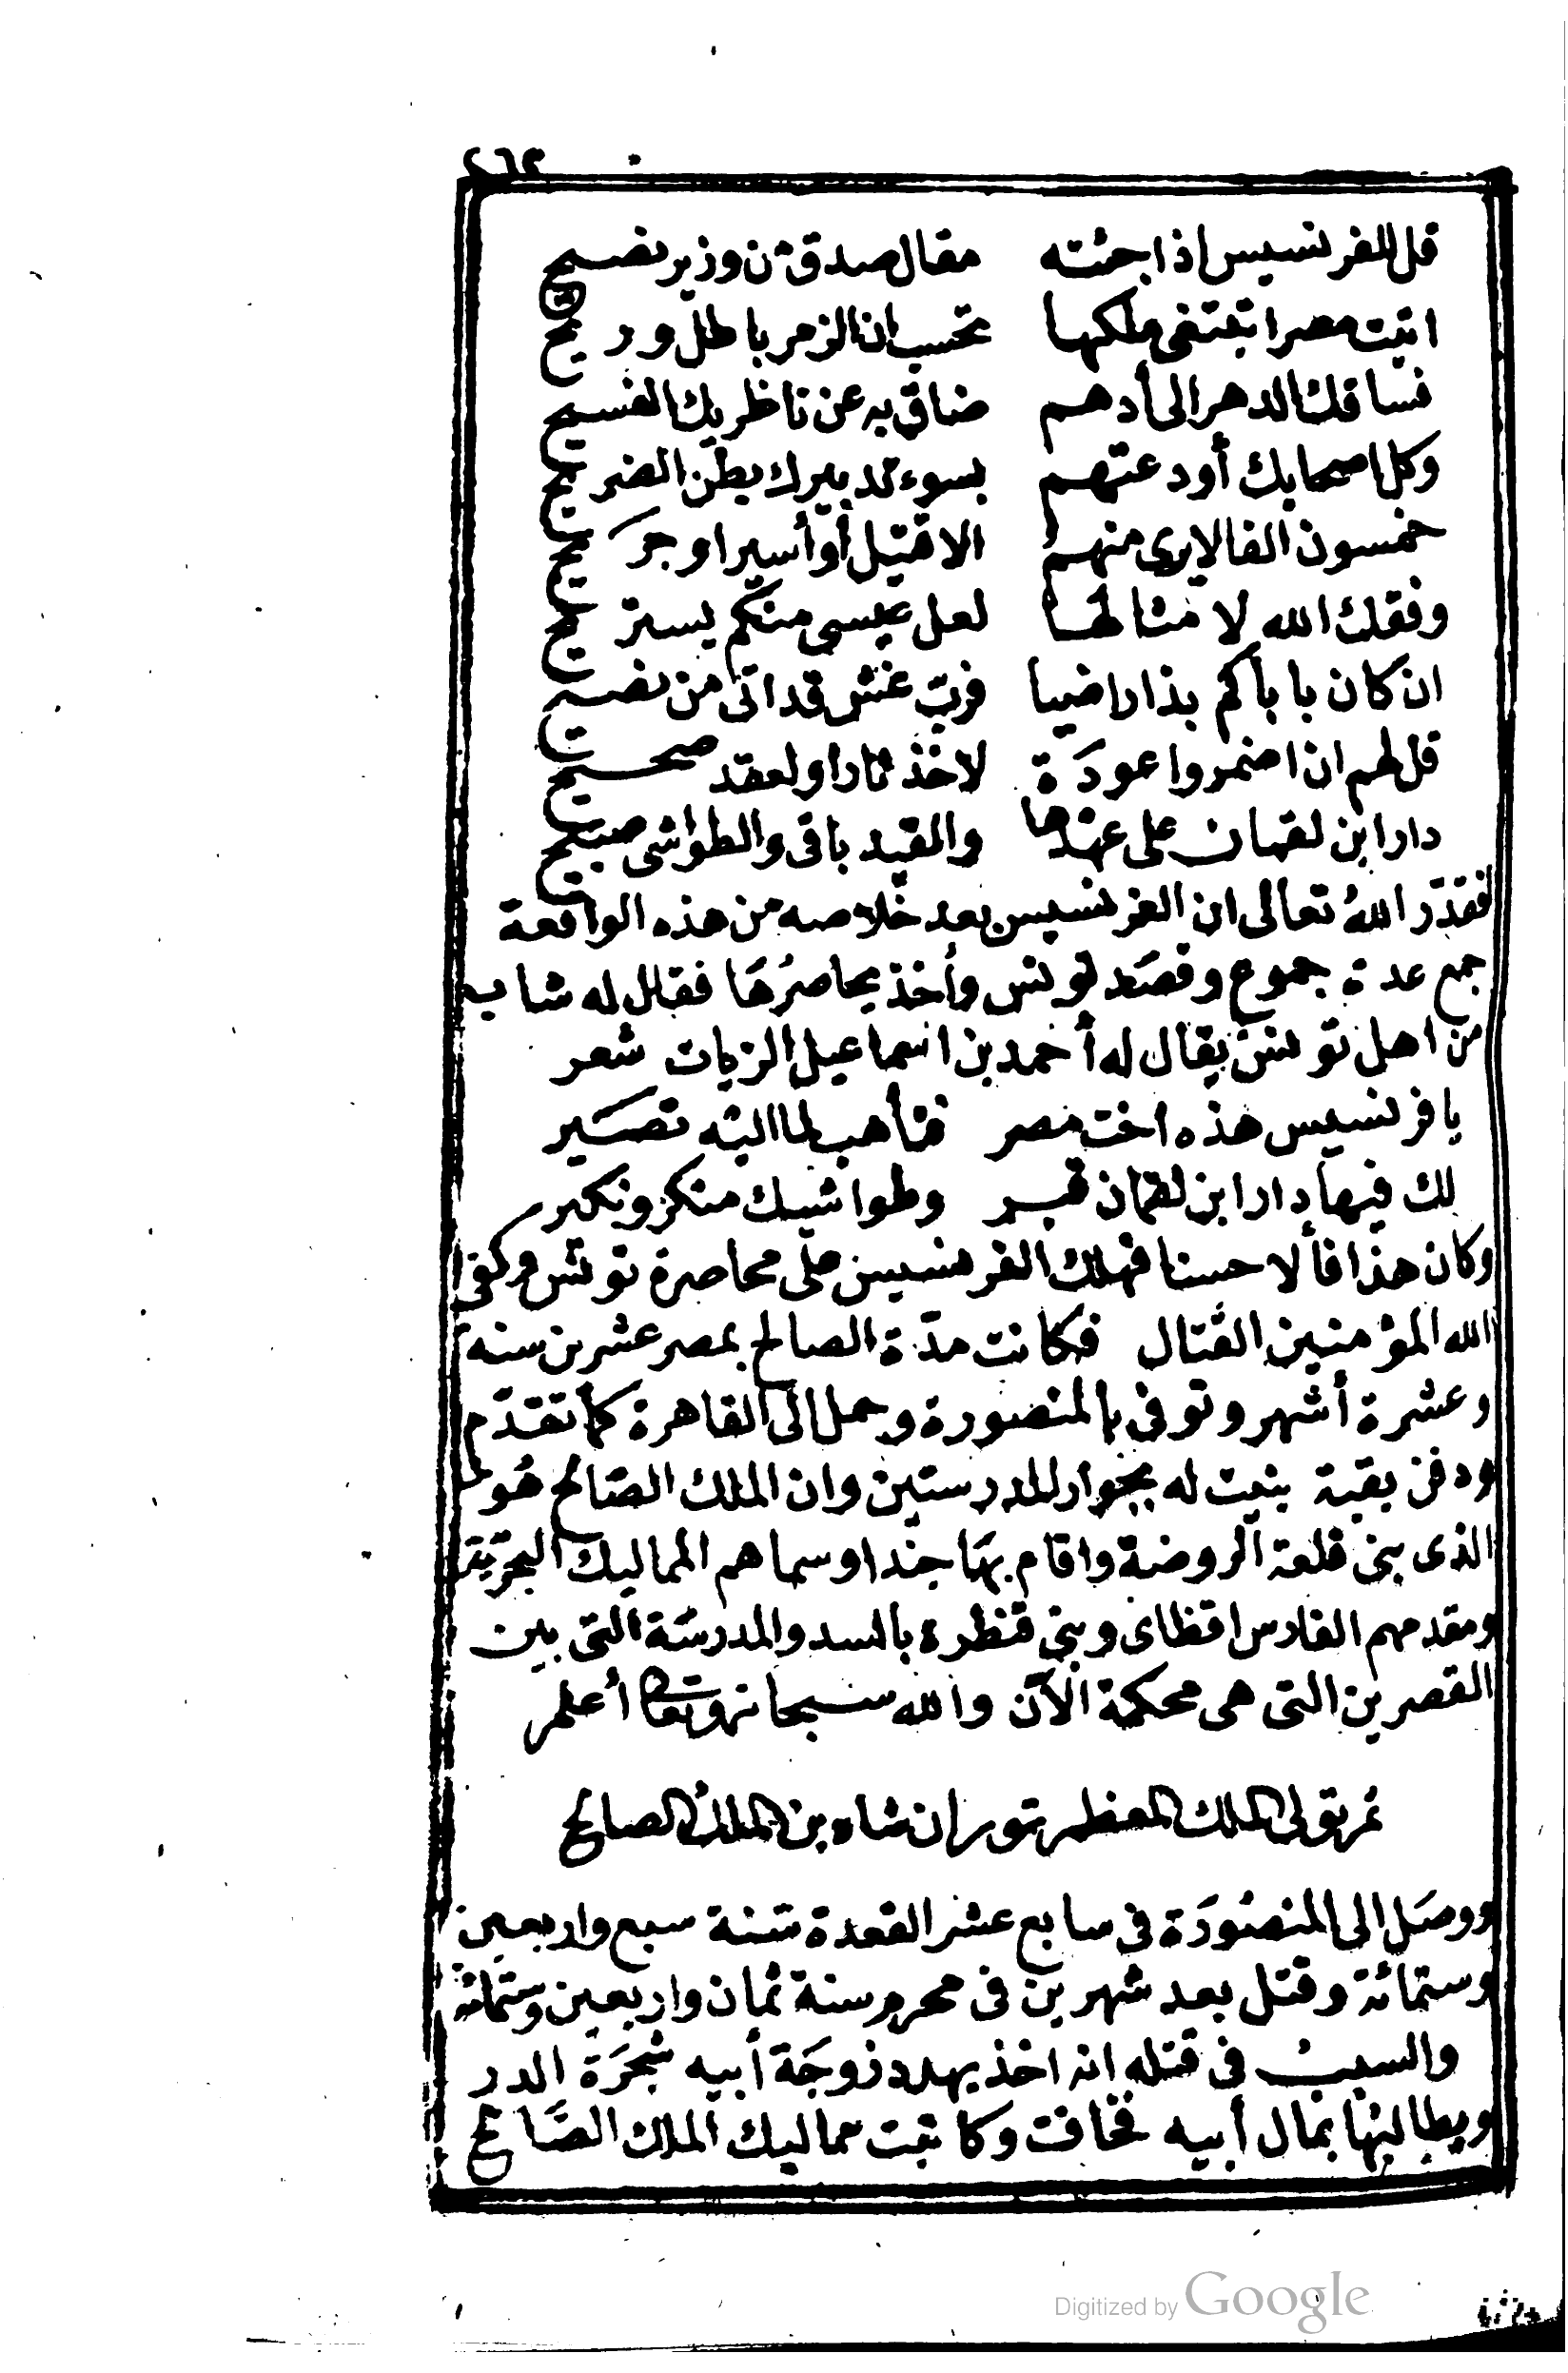 ٢٦٢
قل للفرنسيس اذا جئته   مقال صدق من وزير نصيح
اتيت مصرا تبتغى ملكها   تحسب ان الزمر يا طبل ريح
فساقك الدهر الى أدهم   ضاق به عن ناظريك الفسيح
وكل اصحابك أودعتهم   بسوء تدبيرك بطن الضريح
خمسون الفا لا يرى منهم   الا قتيل أو أسيرا وجريح
وفقك الله لامثالها   لعل عيسى منكم يستريح
ان كان باباكم بذا راضيا   فرب غش قد اتى من نصيح
قل لهم ان اضمروا عودة   لاخذ ثارا ولعقد صحيح
دار ابن لقمان على عهدها   والقيد باقى والطواشى صبيح
فقدّر اللهُ تعالى ان الفرنسيس بعد خلاصه من هذه الواقعة
جمع عدة جموع وقصد تونس وأخذ يحاصرُهَا فقال له شاب
من اهل تونس يقال له أحمد بن اسماعيل الزيات شعر
يا فرنسيس هذه اخت مصر   فتأهب لما اليه تصير
لك فيها دار ابن لقمان قبر   وطواشيك منكر ونكير
وكان هذا فألا حسنا فهلك الفرنسيس على محاصرة تونس وكفى
الله المؤمنين القتال   فكانت مدّة الصالح بمصر عشرين سنة
وعشرة أشهر وتوفى بالمنصورة وحمل الى القاهرة كما تقدّم
ودفن بقبة بنيت له بجوار المدرستين وان الملك الصالح هُو
الذى بنى قلعة الروضة واقام بهَا جندا وسماهم المماليك البحرية
ومقدمهم الفارس اقطاى وبنى قنطرة بالسد والمدرسة التى بين
القصرين التى هى محكمة الآن والله سبحانه وتعا أعلم
ثم تولى الملك المعظم توران شاه بن الملك الصالح
ووصَل الى المنصُورَة فى سابع عشر القعدة سنة سبع واربعين
وستمائة وقتل بعد شهرين فى محرم سنة ثمان واربعين وستمائة
والسبب فى قتله انه اخذ يهدد زوجَة أبيه شجرَة الدر
ويطالبها بمال أبيه فخافت وكاتبت مماليك الملك الصَّالح
Digitized by Google